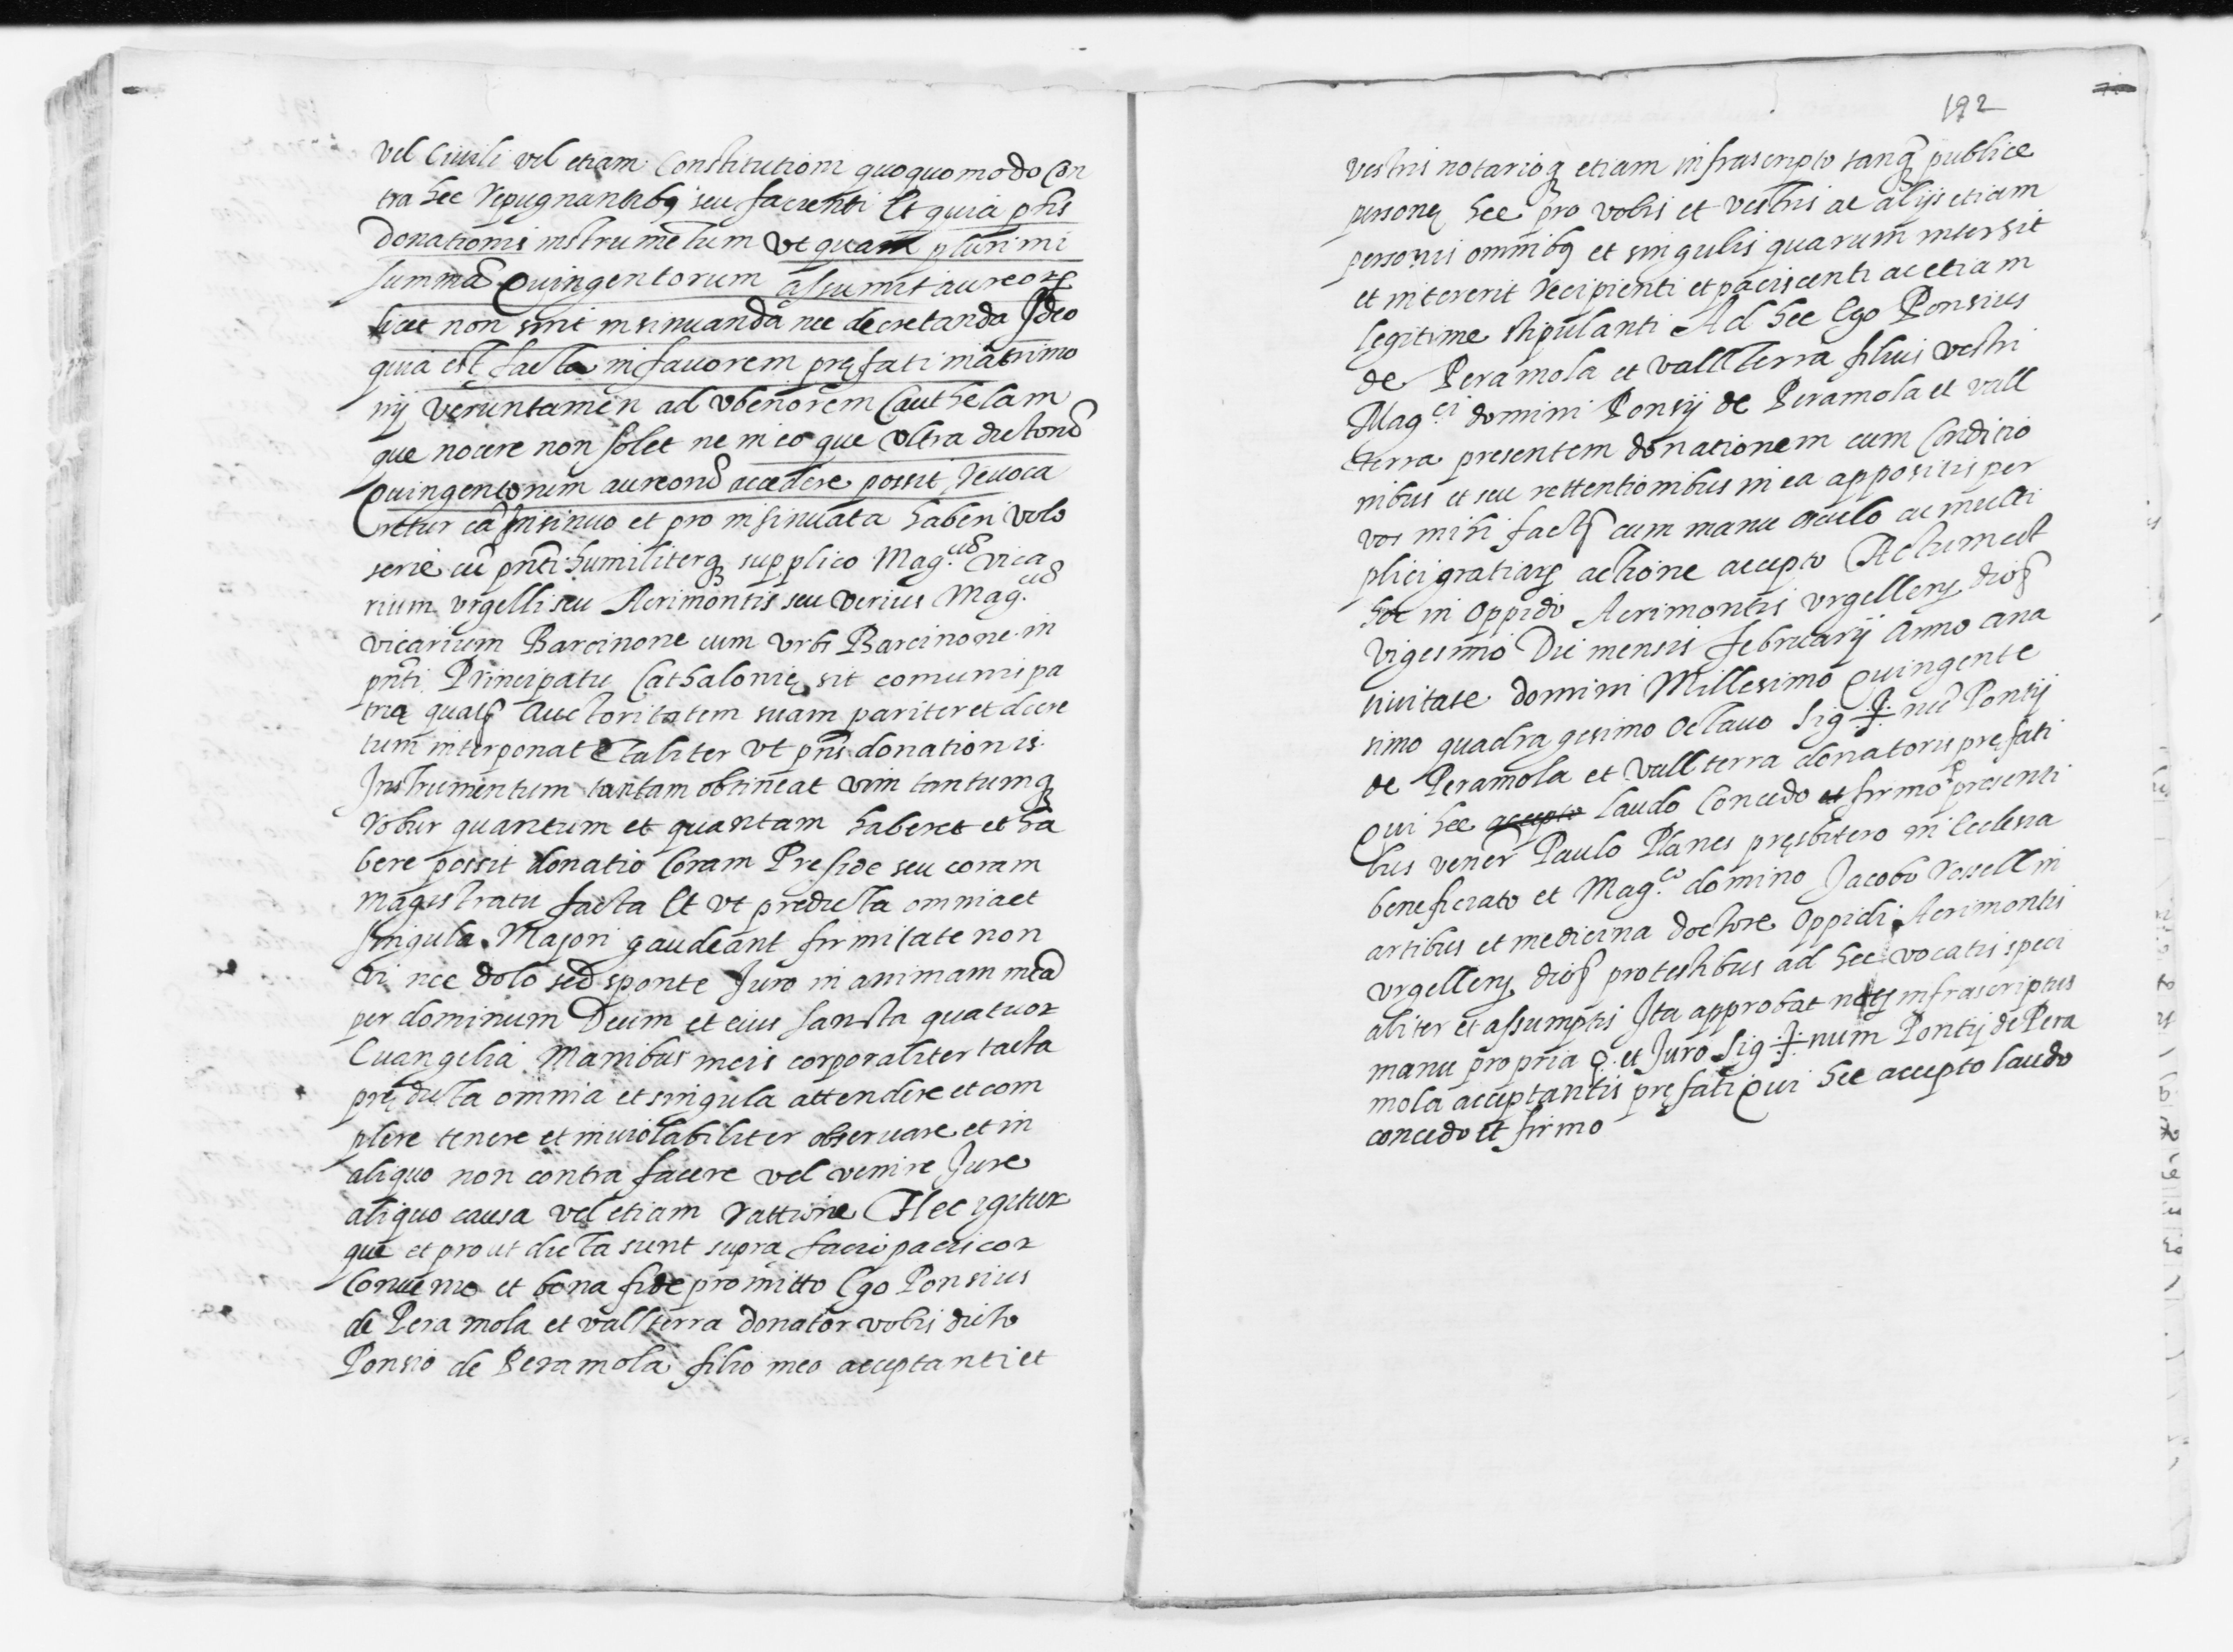 vel Ciuili vel etiam Constitutioni quoquomodo Con
tra hec repugnantibꝰ seu facienti Et quia pñs
donationis instrumẽtum vt quam plurimi
summã Quingentorum assumit aureoꝝ
licet non sint insinuanda nec decretanda Ideo
quia est facta in fauorem pręfati matrimo
nij Veruntamen ad vberiorem Cauthelam
que nocere non solet ne in eo que vltra dictorũ
Quingentorum aureorũ accedere possit reuoca
retur eã Insinuo et pro insinuata haberi volo
serie cũ pñti humiliterqꝫ supplico Mag.cũ vica
rium vrgelli seu Acrimontis seu verius Mag.cũ
vicarium Barcinone cum vrbs Barcinone in
pñti Principatu Cathalonię sit comunis pa
tria quatꝰ Auctoritatem suam pariter et decre
tum interponat Taliter vt pñs donationis
Instrumentum tantam obtineat vim tantumqꝫ
robur quantum et quantam haberet et ha
bere possit donatio Coram Preside seu coram
magistratu facta Et vt predicta omnia et
singula Majori gaudeant firmitate non
vi nec dolo sed sponte Juro in animam meã
per dominum Deum et eius Sancta quatuor
Euangelia Manibus meis corporaliter tacta
prędicta omnia et singula attendere et com
plere tenere et inuiolabiliter obseruare et in
aliquo non contra facere vel venire Jure
aliquo causa vel etiam rattione Hec igitur
que et prout dicta sunt supra facio paciscor
Conuenio et bona fide promitto Ego Ponsius
de Peramola et vallterra donator vobis dicto
Ponsio de Peramola filio meo acceptanti et
192
vestris notarioqꝫ etiam infrascripto tanqꝫ publice
personę hec pro vobis et vestris ac alijs etiam
personis omnibꝰ et singulis quarum intersit
et intererit recipienti et paciscenti ac etiam
legitime stipulanti Ad hec Ego Ponsius
de Peramola et vallterra filius vestri
Mag.ci domini Ponsij de Peramola et vall
terra presentem donationem cum Conditio
nibus et seu rettentionibus in ea appositis per
vos mihi factꝭ cum manu osculo ac multi
plici gratiaꝝ actione accepto Actum est
hoc in Oppido Acrimontis vrgelleñ dioꝭ
vigesimo Die mensis februarij Anno a na
tiuitate domini Millesimo Quingente
simo quadragesimo Octauo Sig ☩ nũ Pontij
de Peramola et vallterra donatoris pręfati
Qui hec accepto laudo Concedo et firmo presenti
bus vener Paulo Planes pręsbitero in Ecclesia
beneficiato et Mag.co domino Jacobo rossell in
artibus et medicina doctore Oppidi Acrimontis
vrgelleñ dioꝭ protestibus ad hec vocatis speci
aliter et assumptis Ita approbat notꝰ infrascriptus
manu propria et Juro Sig ☩ num Pontij de Pera
mola acceptantis pręfati Qui hec accepto laudo
concedo et firmo